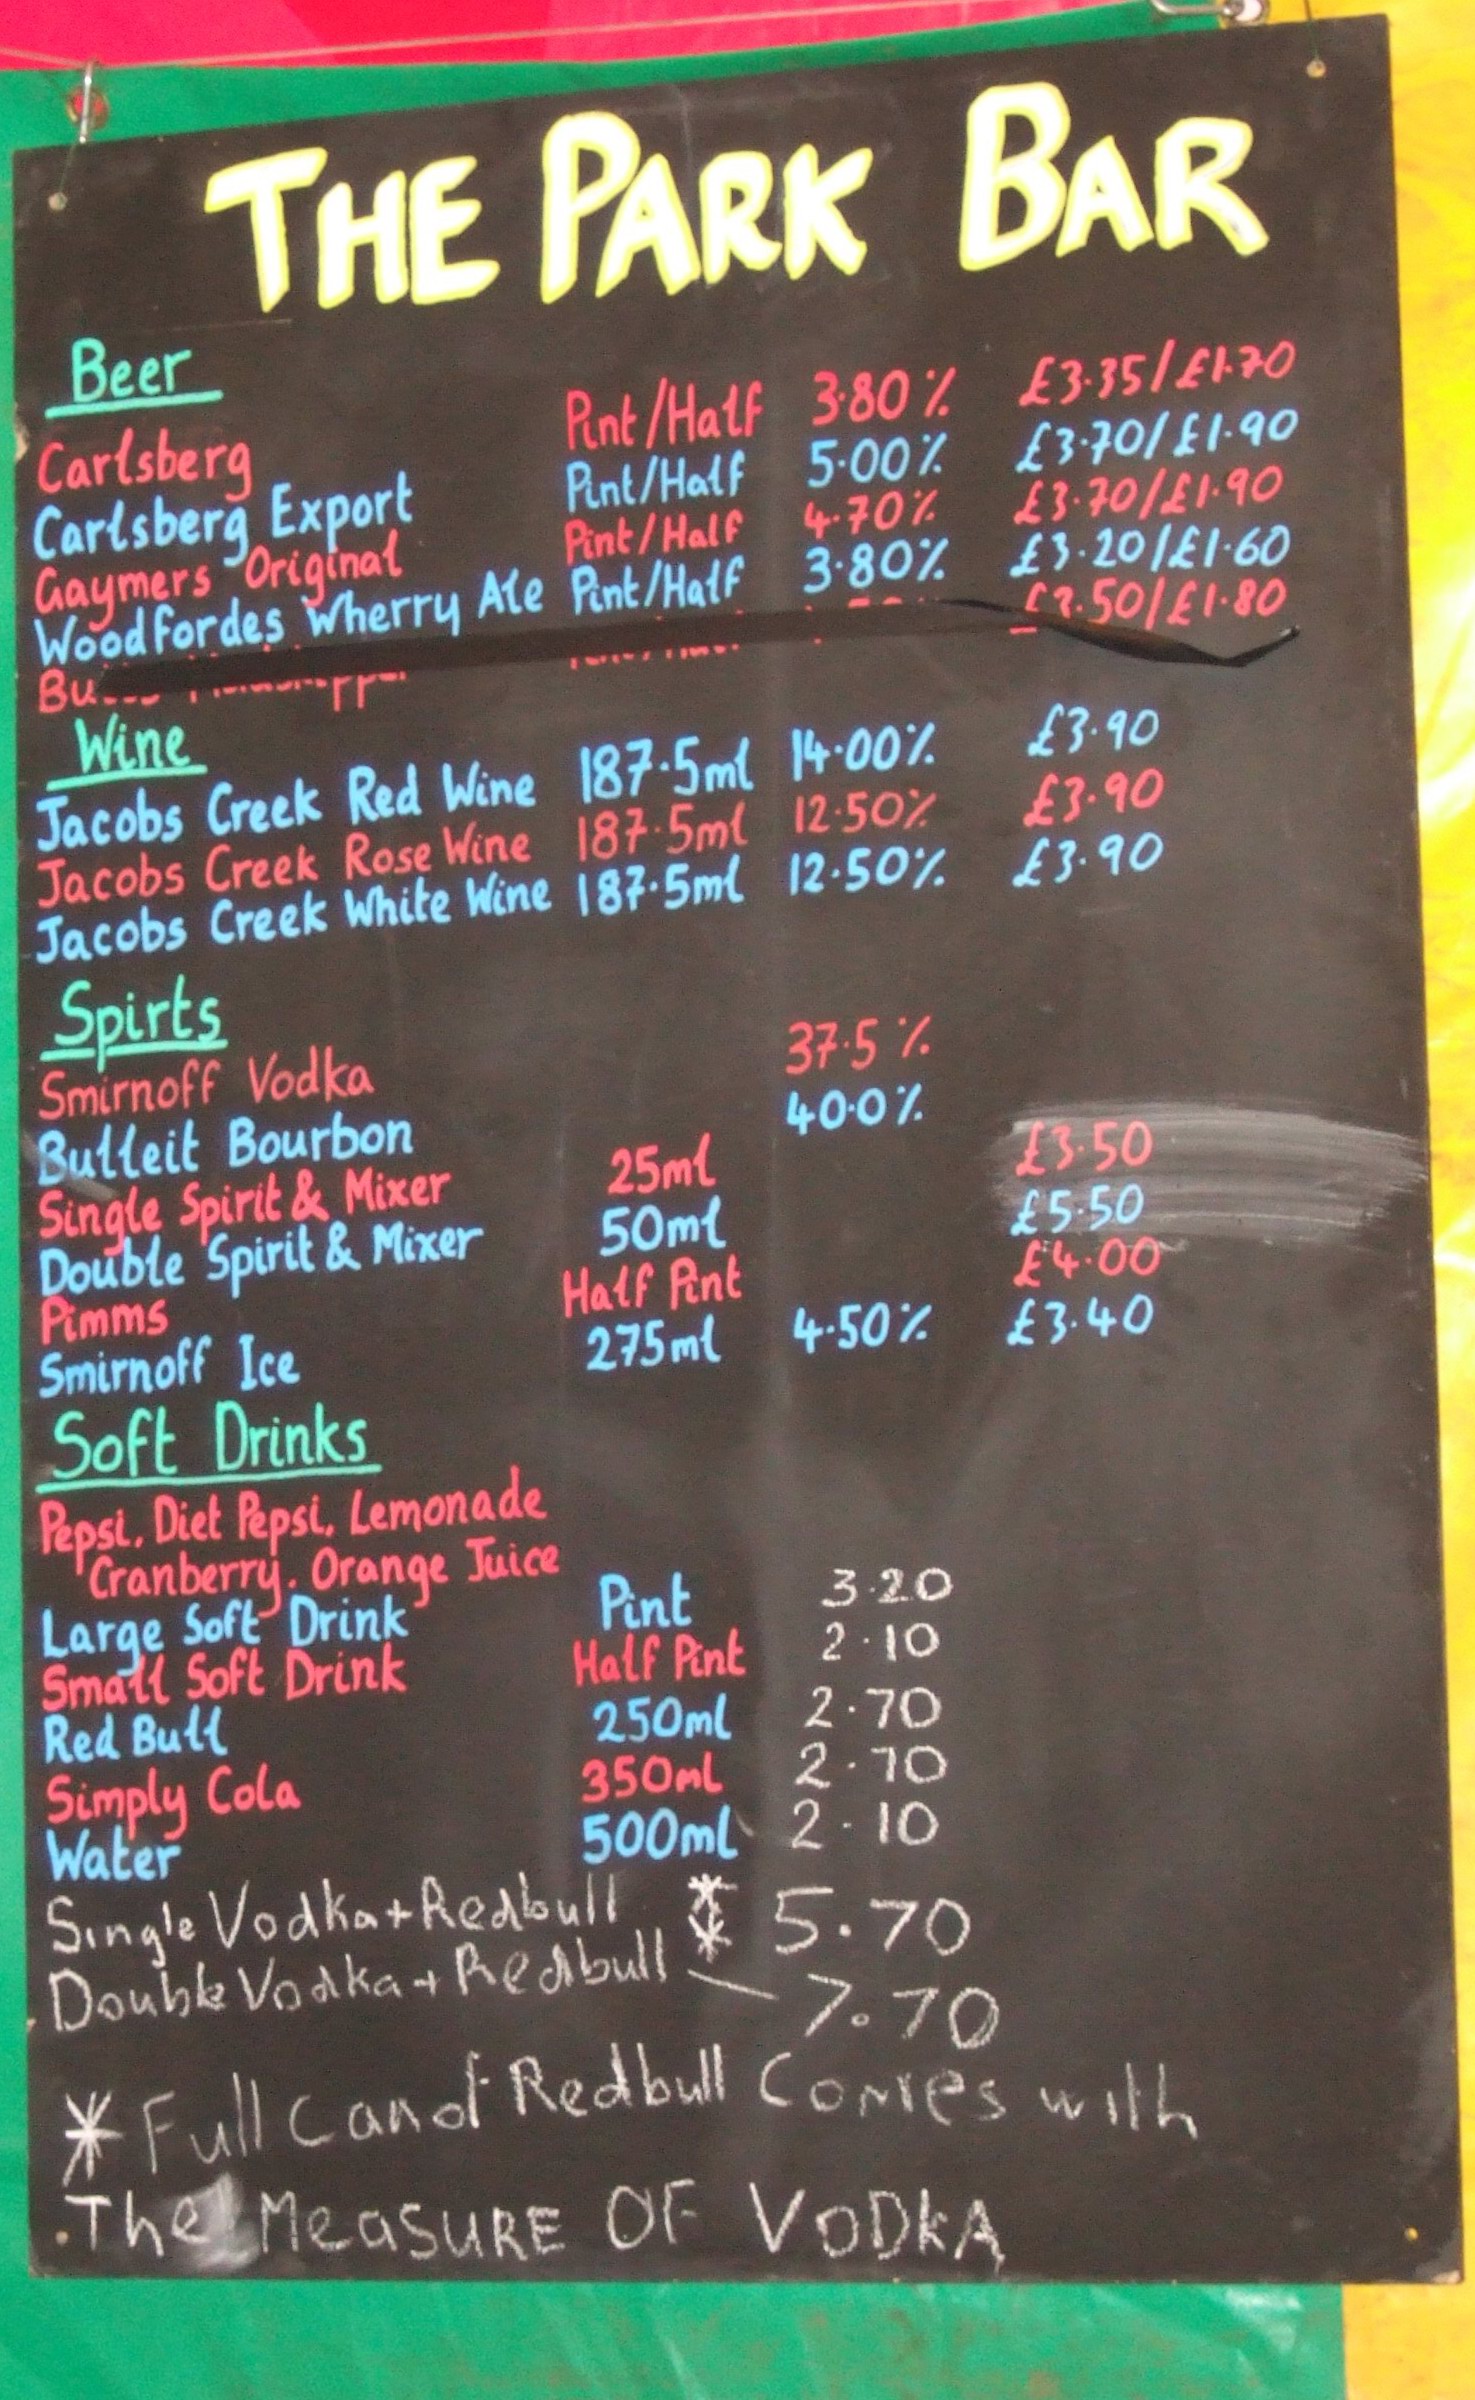 THE PARK BAR
Beer
Carlsberg Pint/Half 3.80% £3.35/£1.70
Carlsberg Export Pint/Half 5.00% £3.70/£1.90
Gaymers Original Pint/Half 4.70% £3.70/£1.90
Woodfordes Wherry Ale Pint/Half 3.80% £3.20/£1.60
£3.50/£1.80
Wine
Jacobs Creek Red Wine 187.5ml 14.00% £3.90
Jacobs Creek Rose Wine 187.5ml 12.50% £3.90
Jacobs Creek White Wine 187.5ml 12.50% £3.90
Spirts
Smirnoff Vodka 37.5%
Bulleit Bourbon 40.0%
Single Spirit & Mixer 25ml £3.50
Double Spirit & Mixer 50ml £5.50
Pimms Half Pint £4.00
Smirnoff Ice 275ml 4.50% £3.40
Soft Drinks
Pepsi, Diet Pepsi, Lemonade
Cranberry, Orange Juice
Large Soft Drink Pint 3.20
Small Soft Drink Half Pint 2.10
Red Bull 250ml 2.70
Simply Cola 350ml 2.70
Water 500ml 2.10
Single Vodka + Redbull * 5.70
Double Vodka + Redbull * 7.70
* Full Can of Redbull Comes with
The Measure OF VODkA